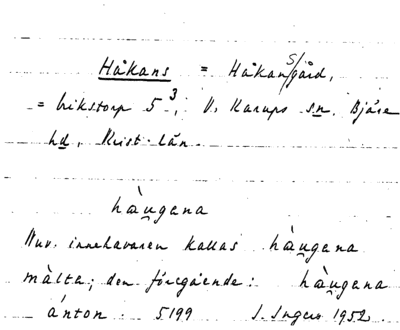 Håkans = Håkans/gård,
= Vikstorp 5³, V. Karups sn. Bjäre
hd, Krist. län.
hàu̯gana
Nuv. innehavaren kallas hàu̯gana
màlta; den föregående: hàu̯gana
ánton. 5199 I. Ingers 1952.